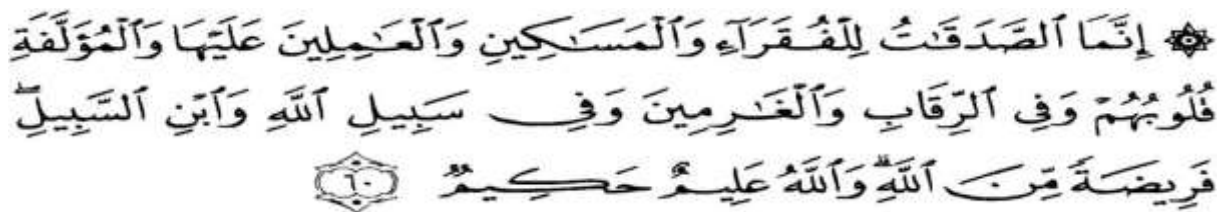 ۞ إِنَّمَا ٱلصَّدَقَـٰتُ لِلْفُقَرَآءِ وَٱلْمَسَـٰكِينِ وَٱلْعَـٰمِلِينَ عَلَيْهَا وَٱلْمُؤَلَّفَةِ
قُلُوبُهُمْ وَفِى ٱلرِّقَابِ وَٱلْغَـٰرِمِينَ وَفِى سَبِيلِ ٱللَّهِ وَٱبْنِ ٱلسَّبِيلِ ۖ
فَرِيضَةً مِّنَ ٱللَّهِ ۗ وَٱللَّهُ عَلِيمٌ حَكِيمٌ ﴿٦٠﴾